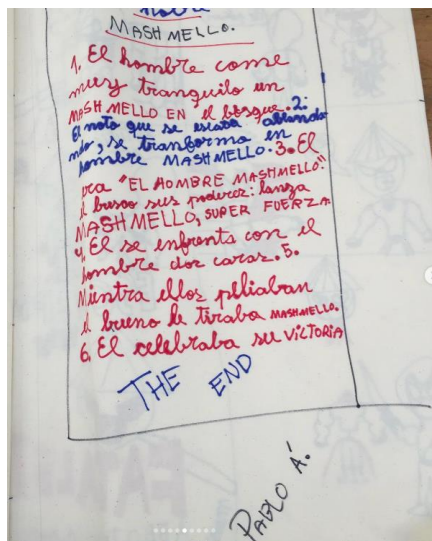 MASH MELLO.
1. El hombre come
muy tranquilo un
MASH MELLO EN el bosque. 2.
El noto que se estava ablanda
ndo, se tranforma en
hombre MASHMELLO. 3. El
era "EL HOMBRE MASHMELLO".
el busco sus poderez: lanza
MASHMELLO, SUPER FUERZA
4. El se enfrenta con el
hombre doz caraz. 5.
Mientra ellos peliaban
el bueno le tiraba MASHMELLO.
6. El celebraba su VICTORIA
THE END
PABLO A.